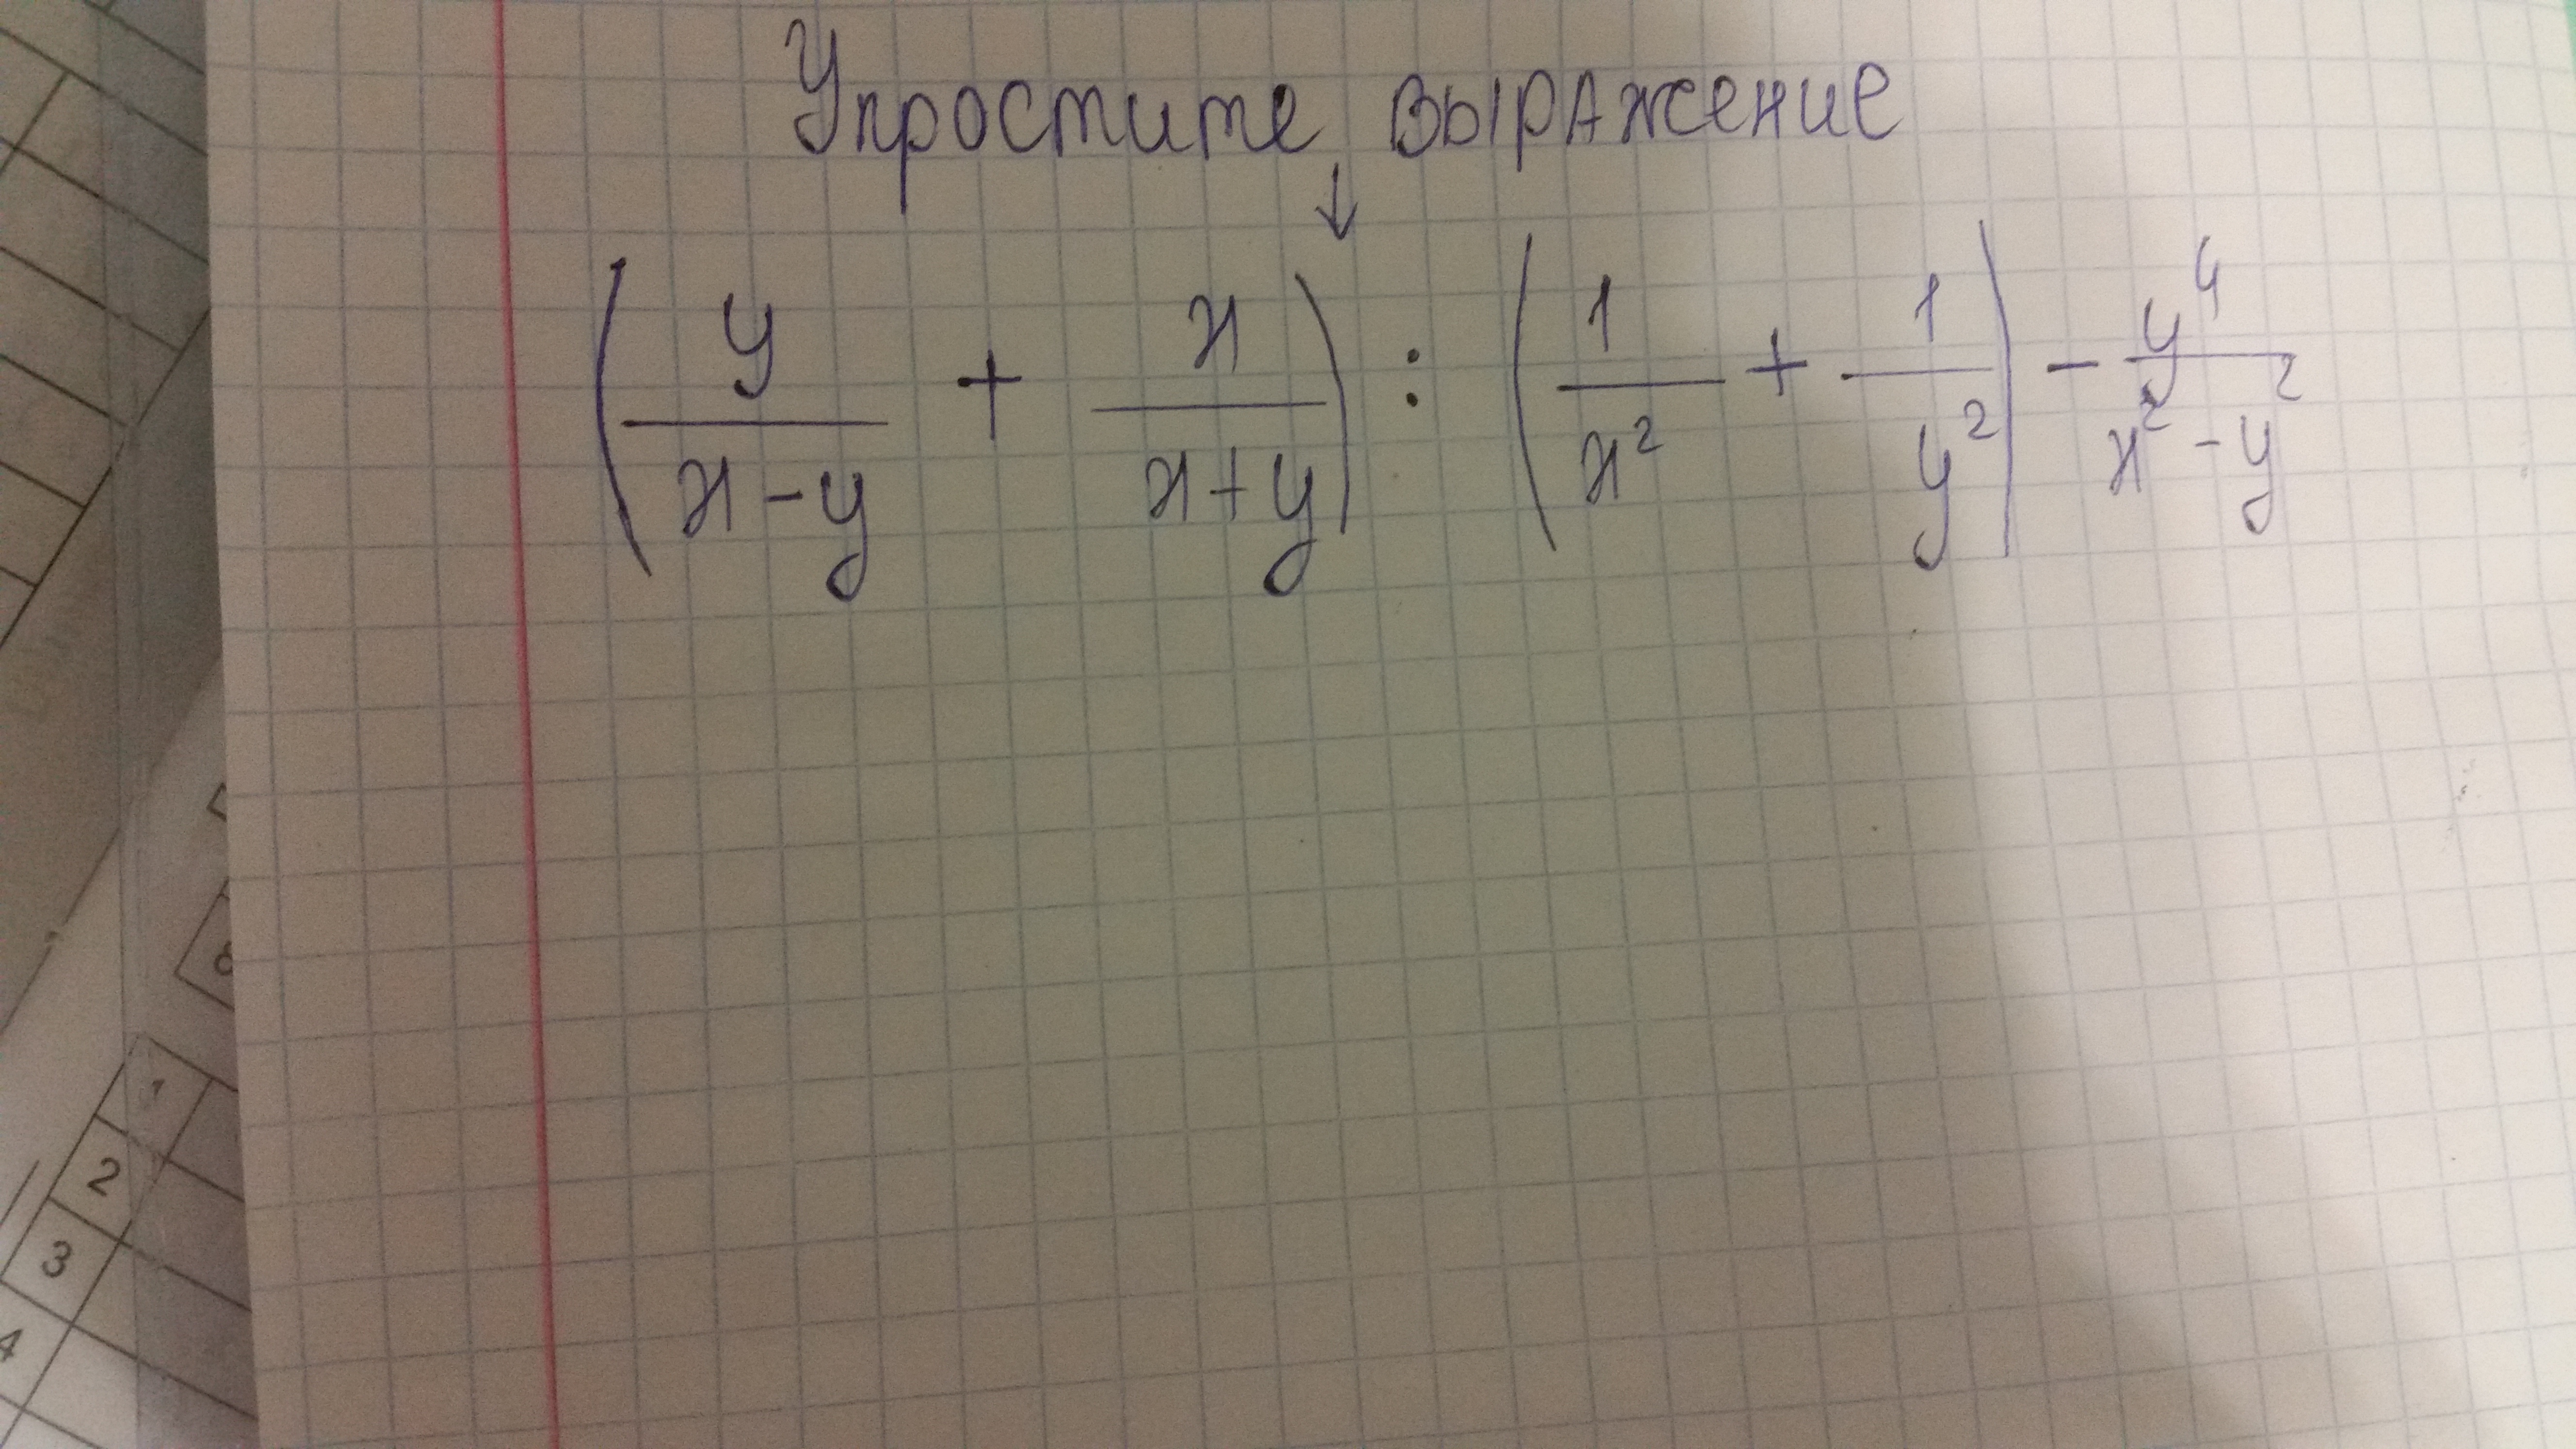 Упростите выражение
↓
(y/(x-y) + x/(x+y)) : (1/x² + 1/y²) - y⁴/(x²-y²)
6
1
2
3
4